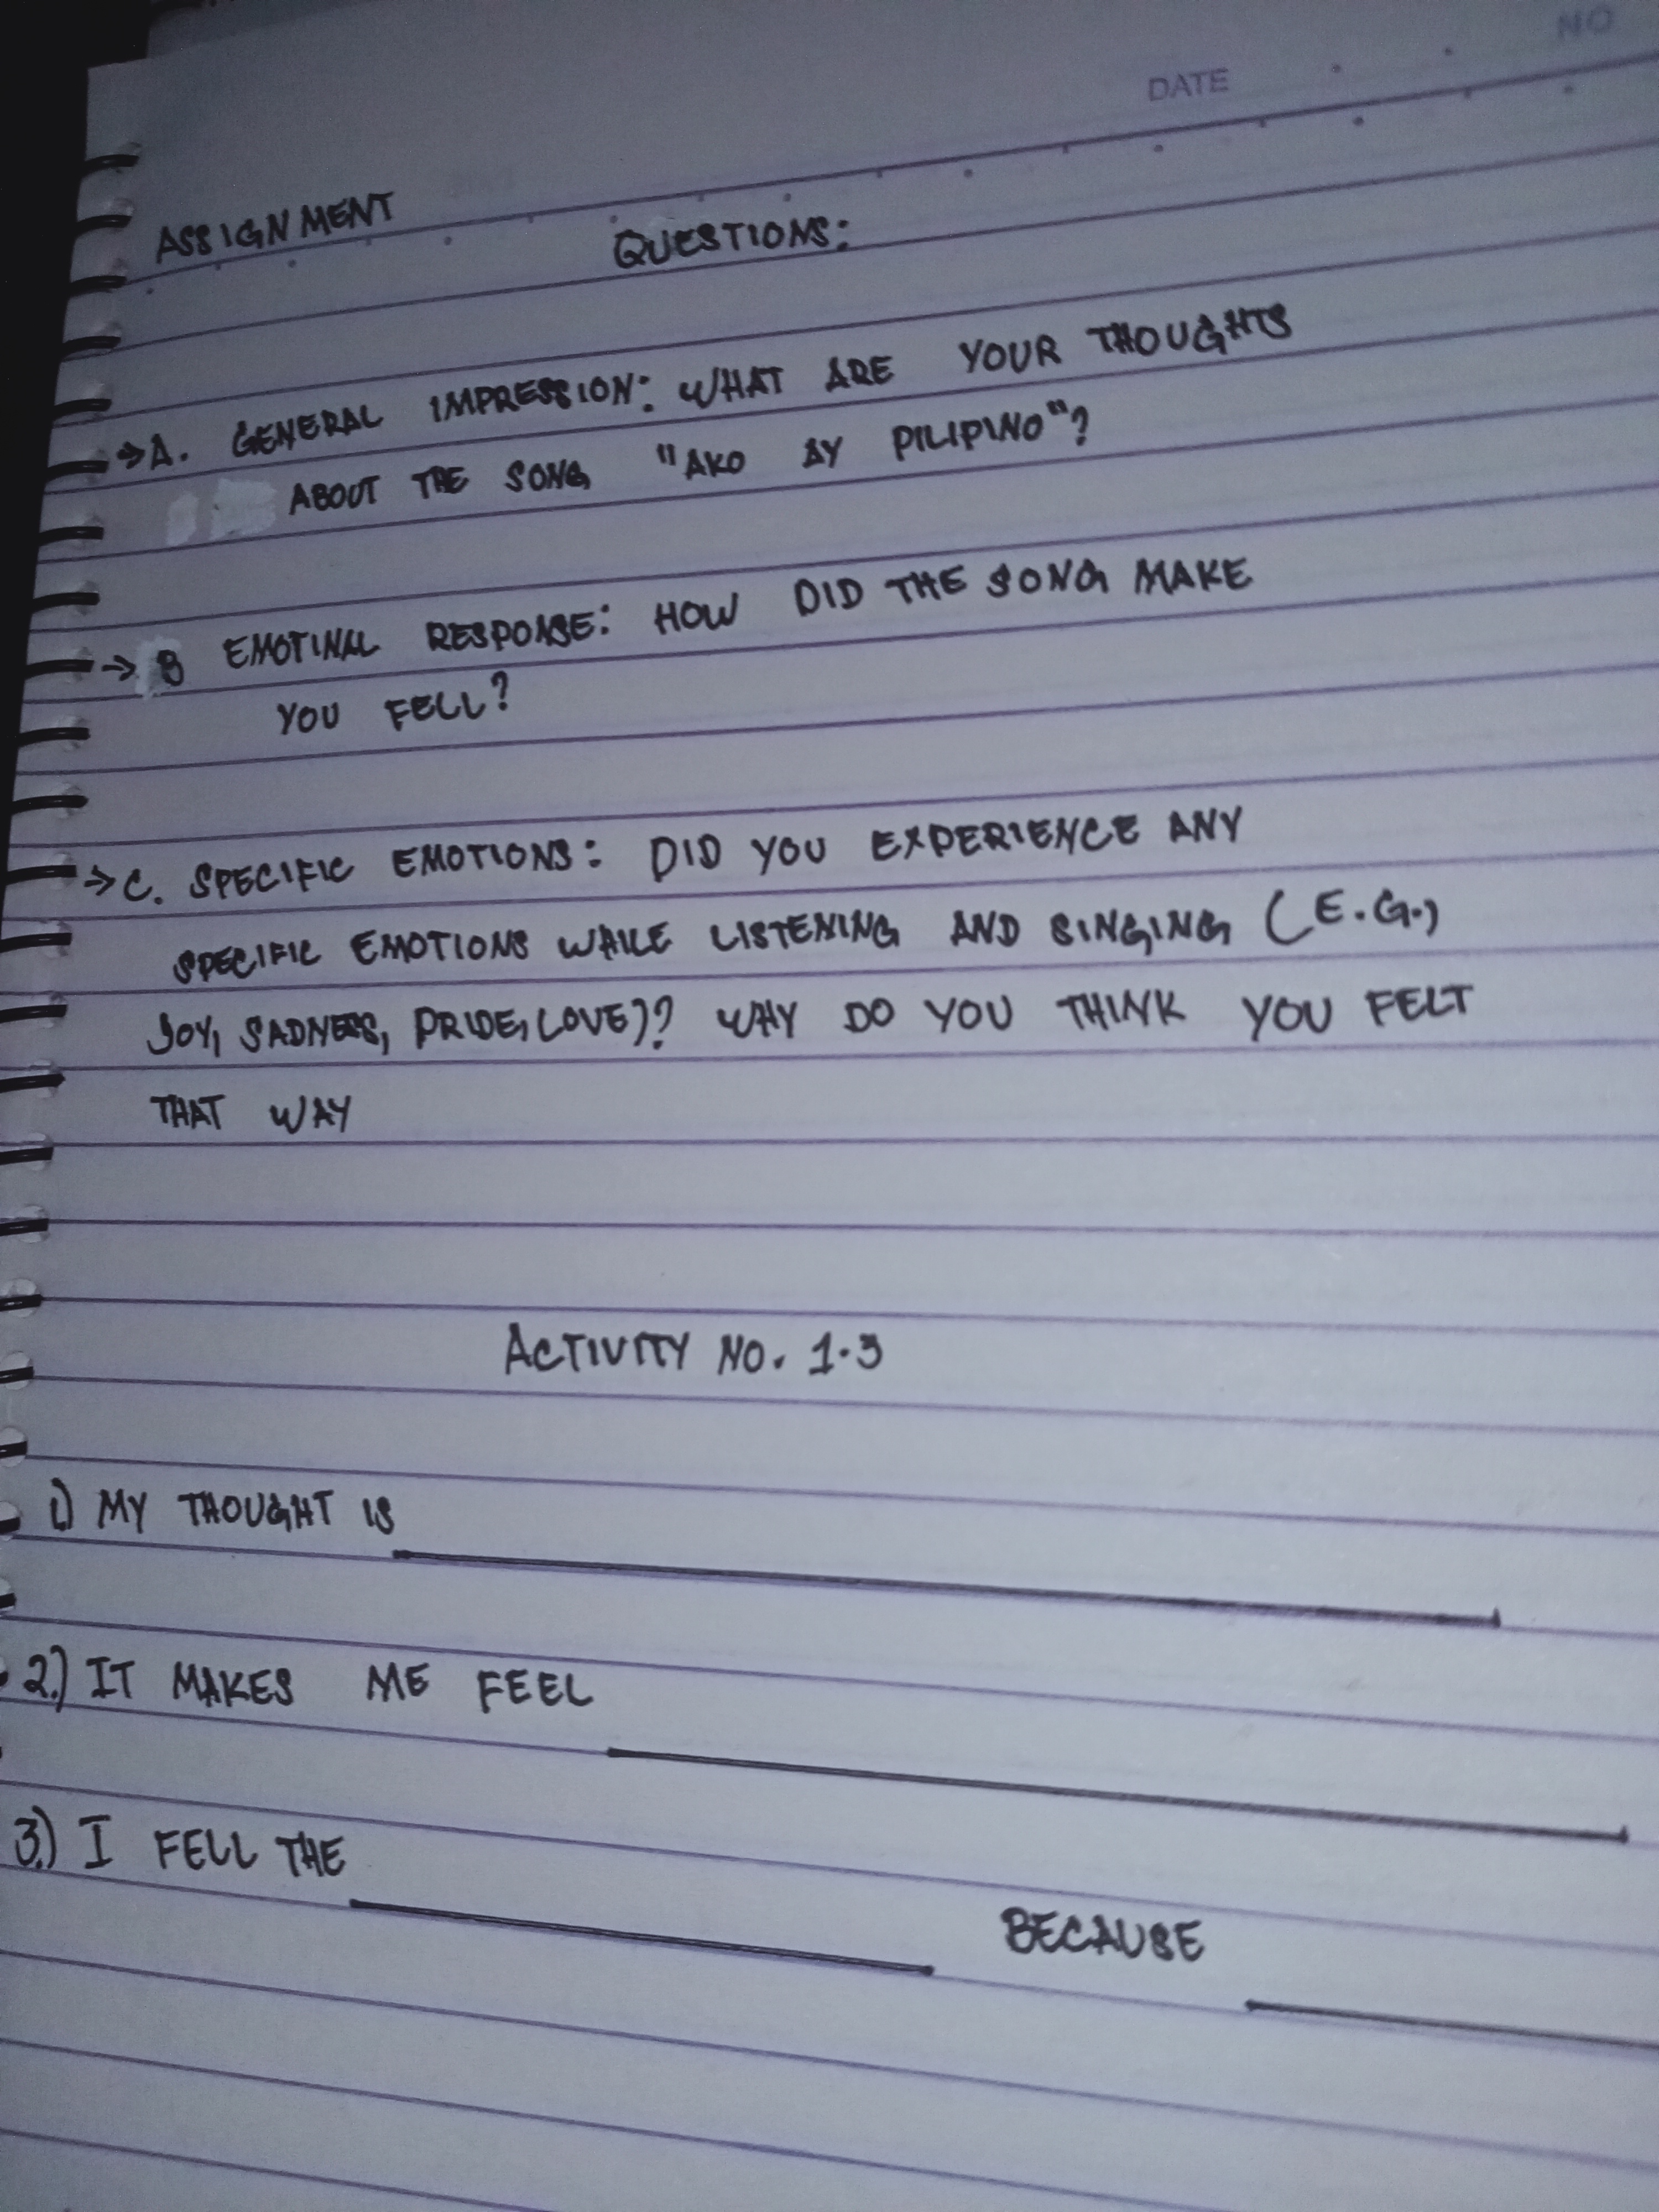 NO
DATE
ASSIGNMENT
QUESTIONS:
→A. GENERAL IMPRESSION: WHAT ARE YOUR THOUGHTS
ABOUT THE SONG "AKO AY PILIPINO"?
→ B EMOTINAL RESPONSE: HOW DID THE SONG MAKE
YOU FELL?
→C. SPECIFIC EMOTIONS: DID YOU EXPERIENCE ANY
SPECIFIC EMOTIONS WHILE LISTENING AND SINGING (E.G.,
JOY, SADNESS, PRIDE, LOVE)? WHY DO YOU THINK YOU FELT
THAT WAY
ACTIVITY NO. 1-3
1.) MY THOUGHT IS
2.) IT MAKES ME FEEL
3.) I FELL THE BECAUSE